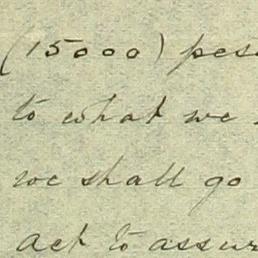 (15000) pes
to what we
we shall go
act to assur